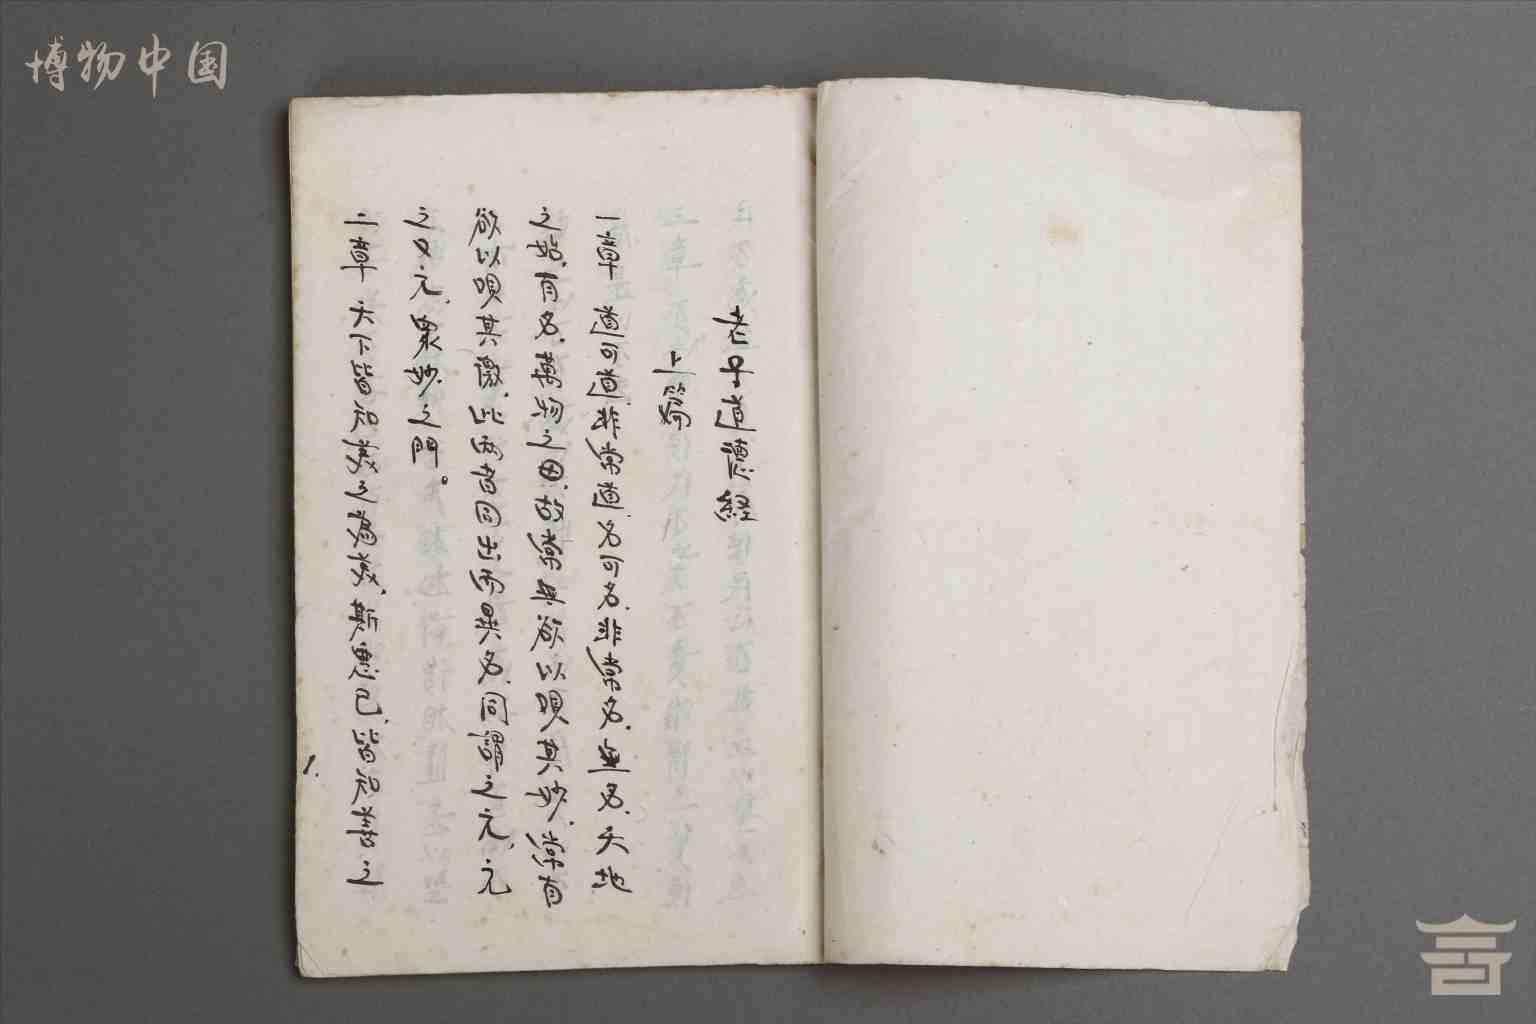 博物中国
老子道德経
上篇
一章 道可道.非常道.名可名.非常名.無名.天地
之始.有名.萬物之母.故常無欲以唄其妙.常有
欲以唄其徼.此両者同出而異名.同謂之元.元
之又元.衆妙之門。
二章 天下皆知美之為美.斯悪已.皆知善之
1.